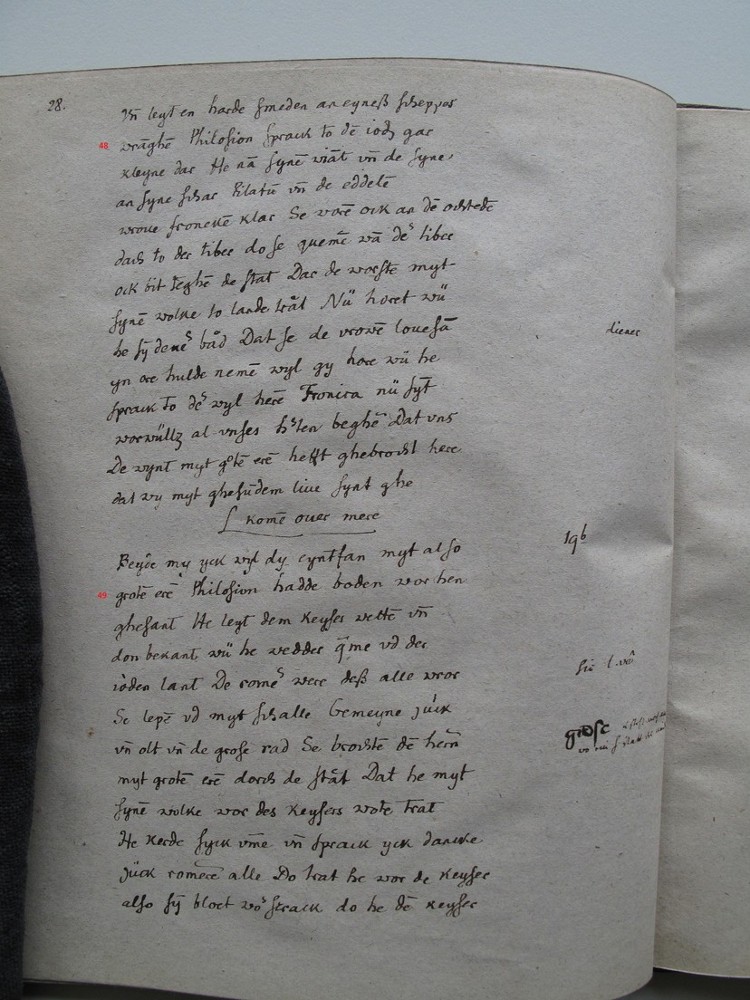 28.
Vn̄ leyt en harde smeden an eyneß scheppes
48 Philosion sprack to dē iodē gar
kleyne dar He nā synē wiāt vn̄ de syne
an syne schar Pilatū vn̄ de eddelē
wrowe fronickē klar Se worē ock an dē
dach to der tiber do se quemē wā der tiber
ock bit teghē de stat Dar de worste myt
synē wolke to lande trāt Nū horet wū
he sy denē båd Dat se de vrowē
yn ore hulde nemē wyl gy hore wū he
sprack to der wyl herē Fronica nū syt
al vnses beghē Dat vns
De wynt myt gotē erē hefft ghebrocht here
dat wy myt ghesūdem liue synt ghe
komē ouer mere
Beyde my yck wyl dy myt also
49 grotē erē Philosion hadde boden wor hen
ghesant He leyt dem keyser wette vn̄
don bekant wū he wedder q̄me vd der
ioden lant De romer were deß alle wror
Se lepē vd myt schalle Gemeyne juck
vn̄ olt vn̄ de grose rad Se brochte dē hern
myt grotē erē dorch de stat Dat he myt
synē wolke wor des keysers wote trat
He kerde syck vme vn̄ sprack yck dancke
jück romere alle Do trat he wor de keyser
also sy bloet strack do he dē keyser
diener
196
sie
grose